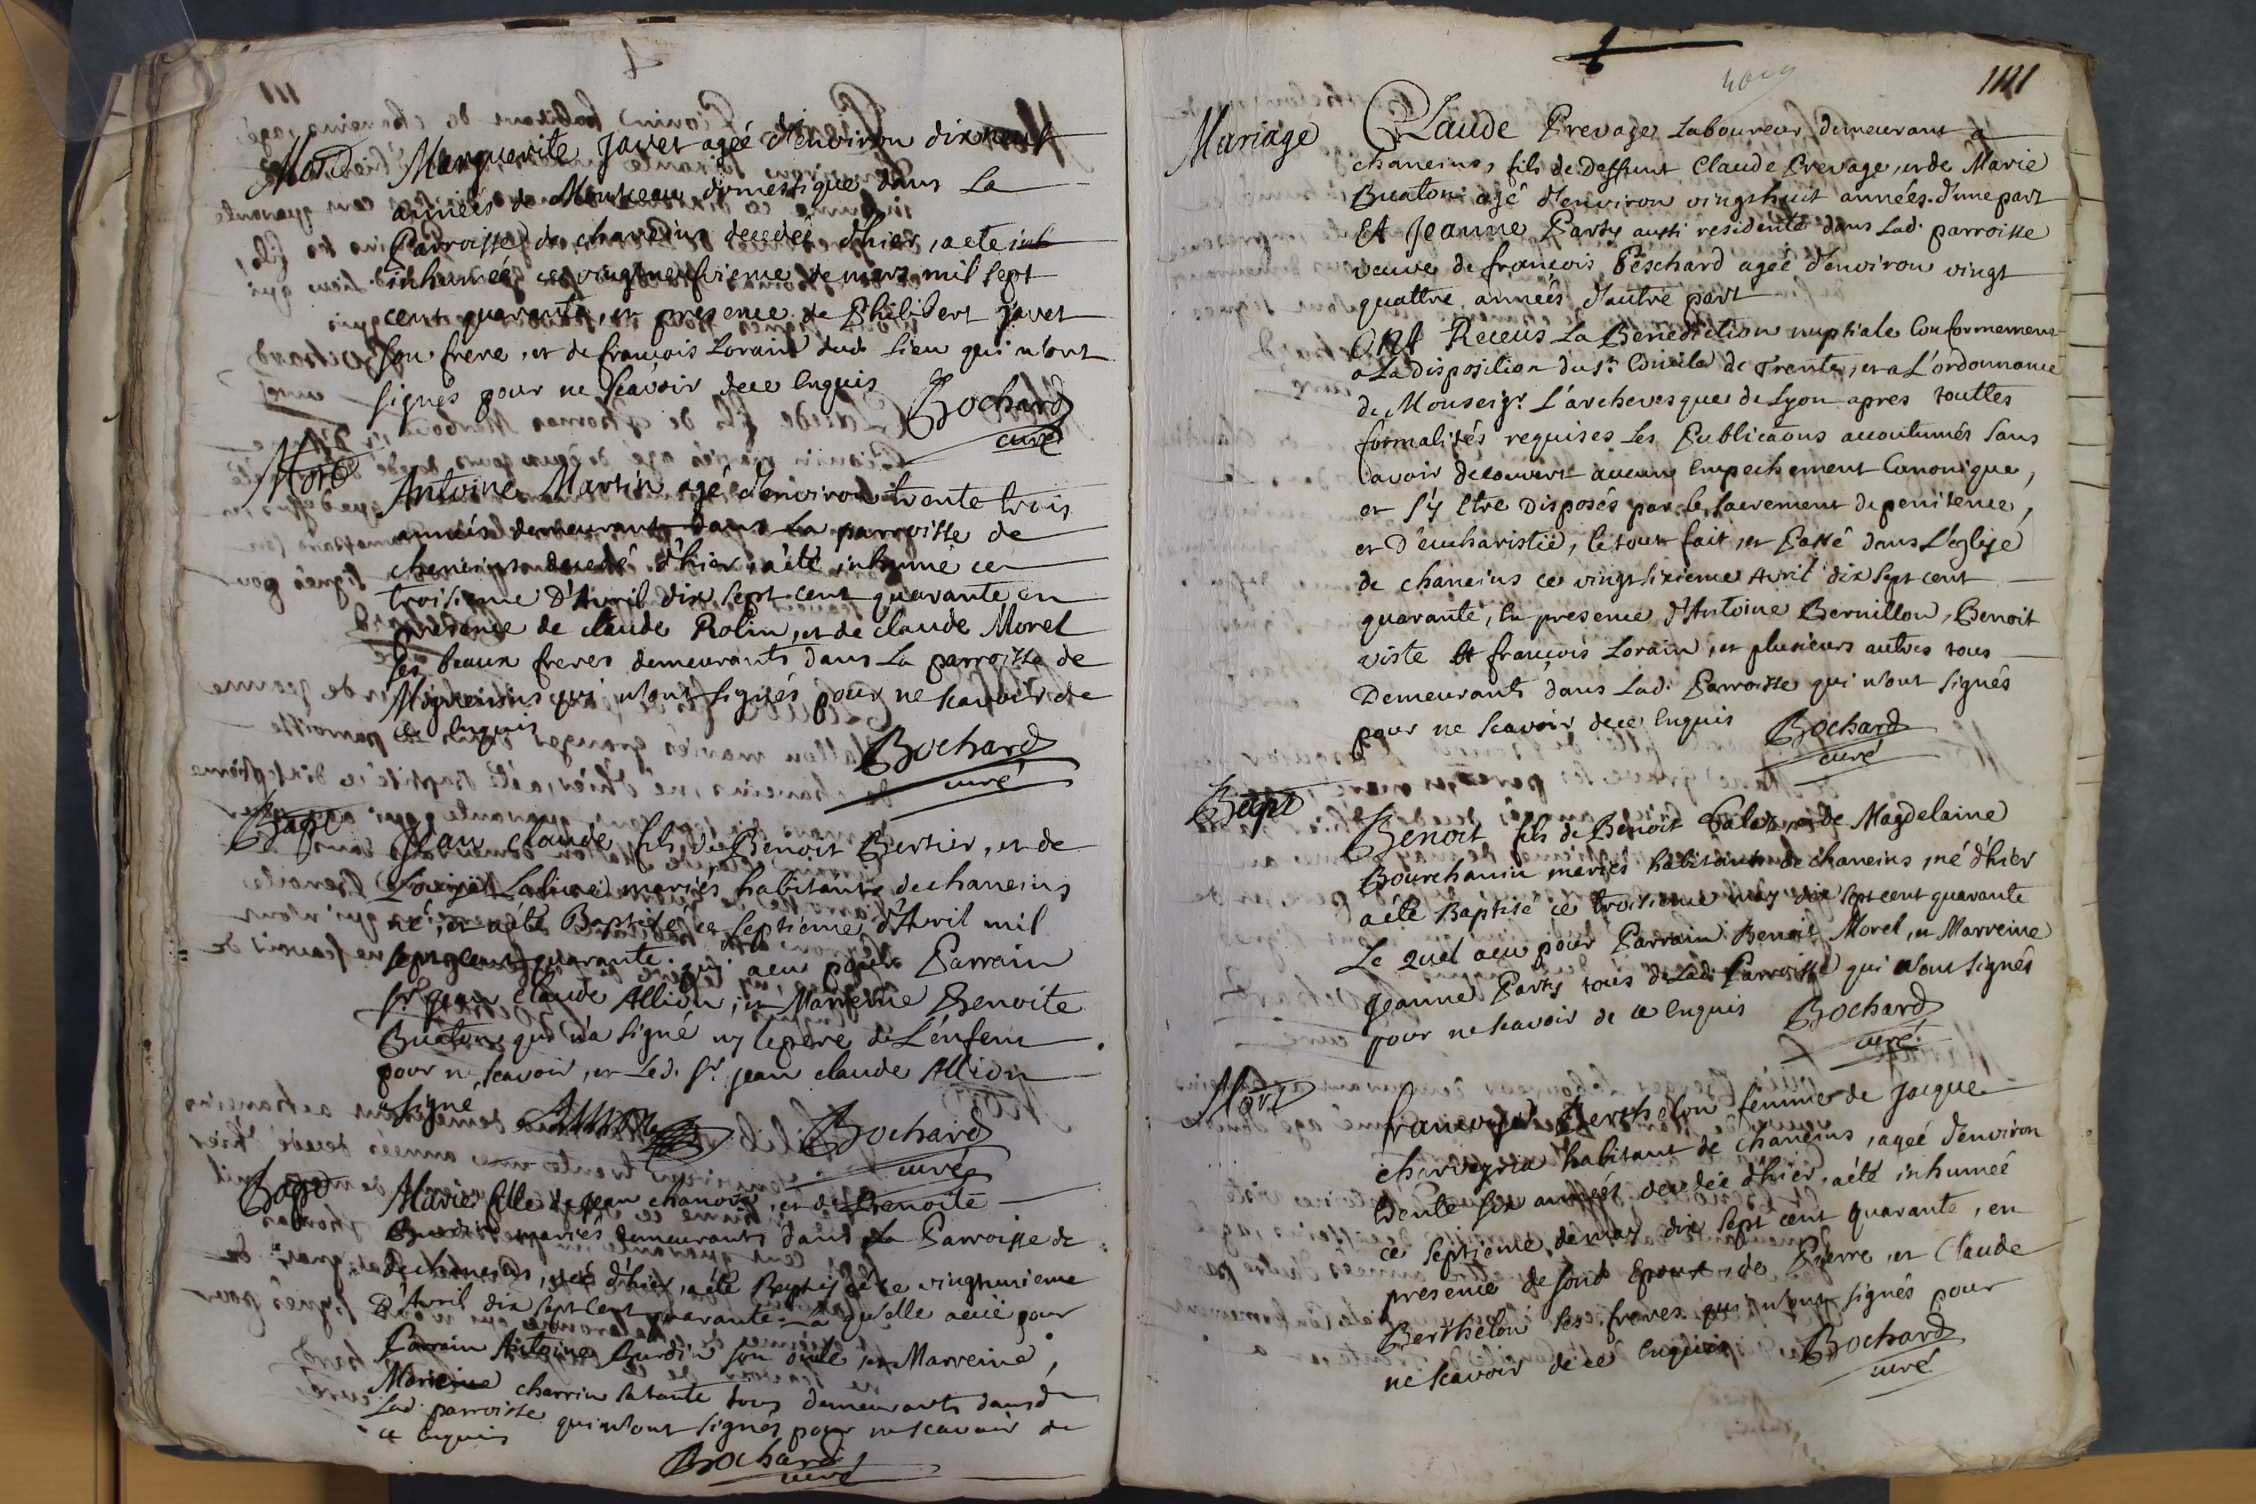 Mort Marguerite Javet agéé d'environ dix neuf
années de Monceau domestique dans la
Parroisse de chaneins decedéé d'hier, a eté inh
inhuméé ce vingtneufvieme de mars mil sept
cent quarante, en presence de Philibert Javet
son frere, et de françois Lorain dud. lieu qui n'ont
signés pour ne sçavoir dece Enquis
Bochard
curé
Mort Antoine Martin agé d'environ trente trois
années demeurant dans la parroisse de
cheneins decedé d'hier, a été inhumé ce
troisieme D'Avril dix sept cent quarante en
presence de claude Rolin, et de claude Morel
ses beaux freres demeurants dans la parroisse de
qui n'ont signés pour ne scavoir de
ce Enquis
Bochard
curé
Bapt Jean claude fils de Benoit Bertier, et de
mariés habitants de chaneins
né, et a été Baptisé ce septieme d'Avril mil
sept cent quarante. qui a eu pour Parrain
sr. jean claude Allion, et Marreine Benoite
Buaton qui n'a signé ny le pere de L'enfent
pour ne scavoir, et led. sr. jean claude Allion
a signé
Bochard
curé
Bapt Marie fille de Jean chanoin, et de Benoite
Burdin mariés demeurants dans la Parroisse de
de cheneins, néé d'hier, a été Baptiséé ce vingtunieme
D'Avril dix sept cent quarante. La qu'elle a eüe pour
Parrain Antoine Burdin son oncle, et Marreine,
charrin sa tante tous demeurants dans
lad. parroisse qui n'ont signés pour ne scavoir de
ce Enquis
Bochard
curé
1111
Mariage Claude Prevage Laboureur demeurant a
chaneins, fils de Deffunt Claude Prevage, et de Marie
Buaton agé d'environ vingthuit années d'une part
Et Jeanne Party aussi residente dans Lad. parroisse
veuve de françois Péschard agéé d'environ vingt
quattre années d'autre part
Ont Receus La Benediction nuptiale Conformement
a La disposition du st. Concile de Trente, et a L'ordonnance
de Monseigr. L'archevesque de Lyon apres touttes
formalités requises Les Publicaons accoutumés sans
avoir decouvert aucun Empechement Canonique,
et s'y Etre Disposés par le sacrement de penitence,
et D'eucharistie, le tout fait, et Passé dans L'eglise
de chaneins ce vingt sixieme Avril dix sept cent
quarante, En presence d'Antoine Bernillon, Benoit
viste et françois Lorain, et plusieurs autres tous
Demeurants dans Lad. Parroisse qui n'ont signés
pour ne scavoir, dece Enquis
Bochard
curé
Bapt Benoit fils de Benoit et de Magdelaine
Bourchanin mariés habitants de chaneins, né d'hier
a été Baptisé ce troisieme may dix sept cent quarante
Le quel a eu pour Parrain Benoit Morel, et Marreine
Jeanne Party tous de Lad. Parroisse qui n'ont signés
pour ne scavoir de ce Enquis
Bochard
curé
Mort françoise Berthelon femme de Jacque
charveyria habitant de chaneins, agéé d'environ
trente six années decedéé d'hier, a été inhuméé
ce septieme de may dix sept cent quarante, en
presence de sond. Epoux, de Pierre, et Claude
Berthelon ses freres qui n'ont signés pour
ne scavoir de ce Enquis
Bochard
curé